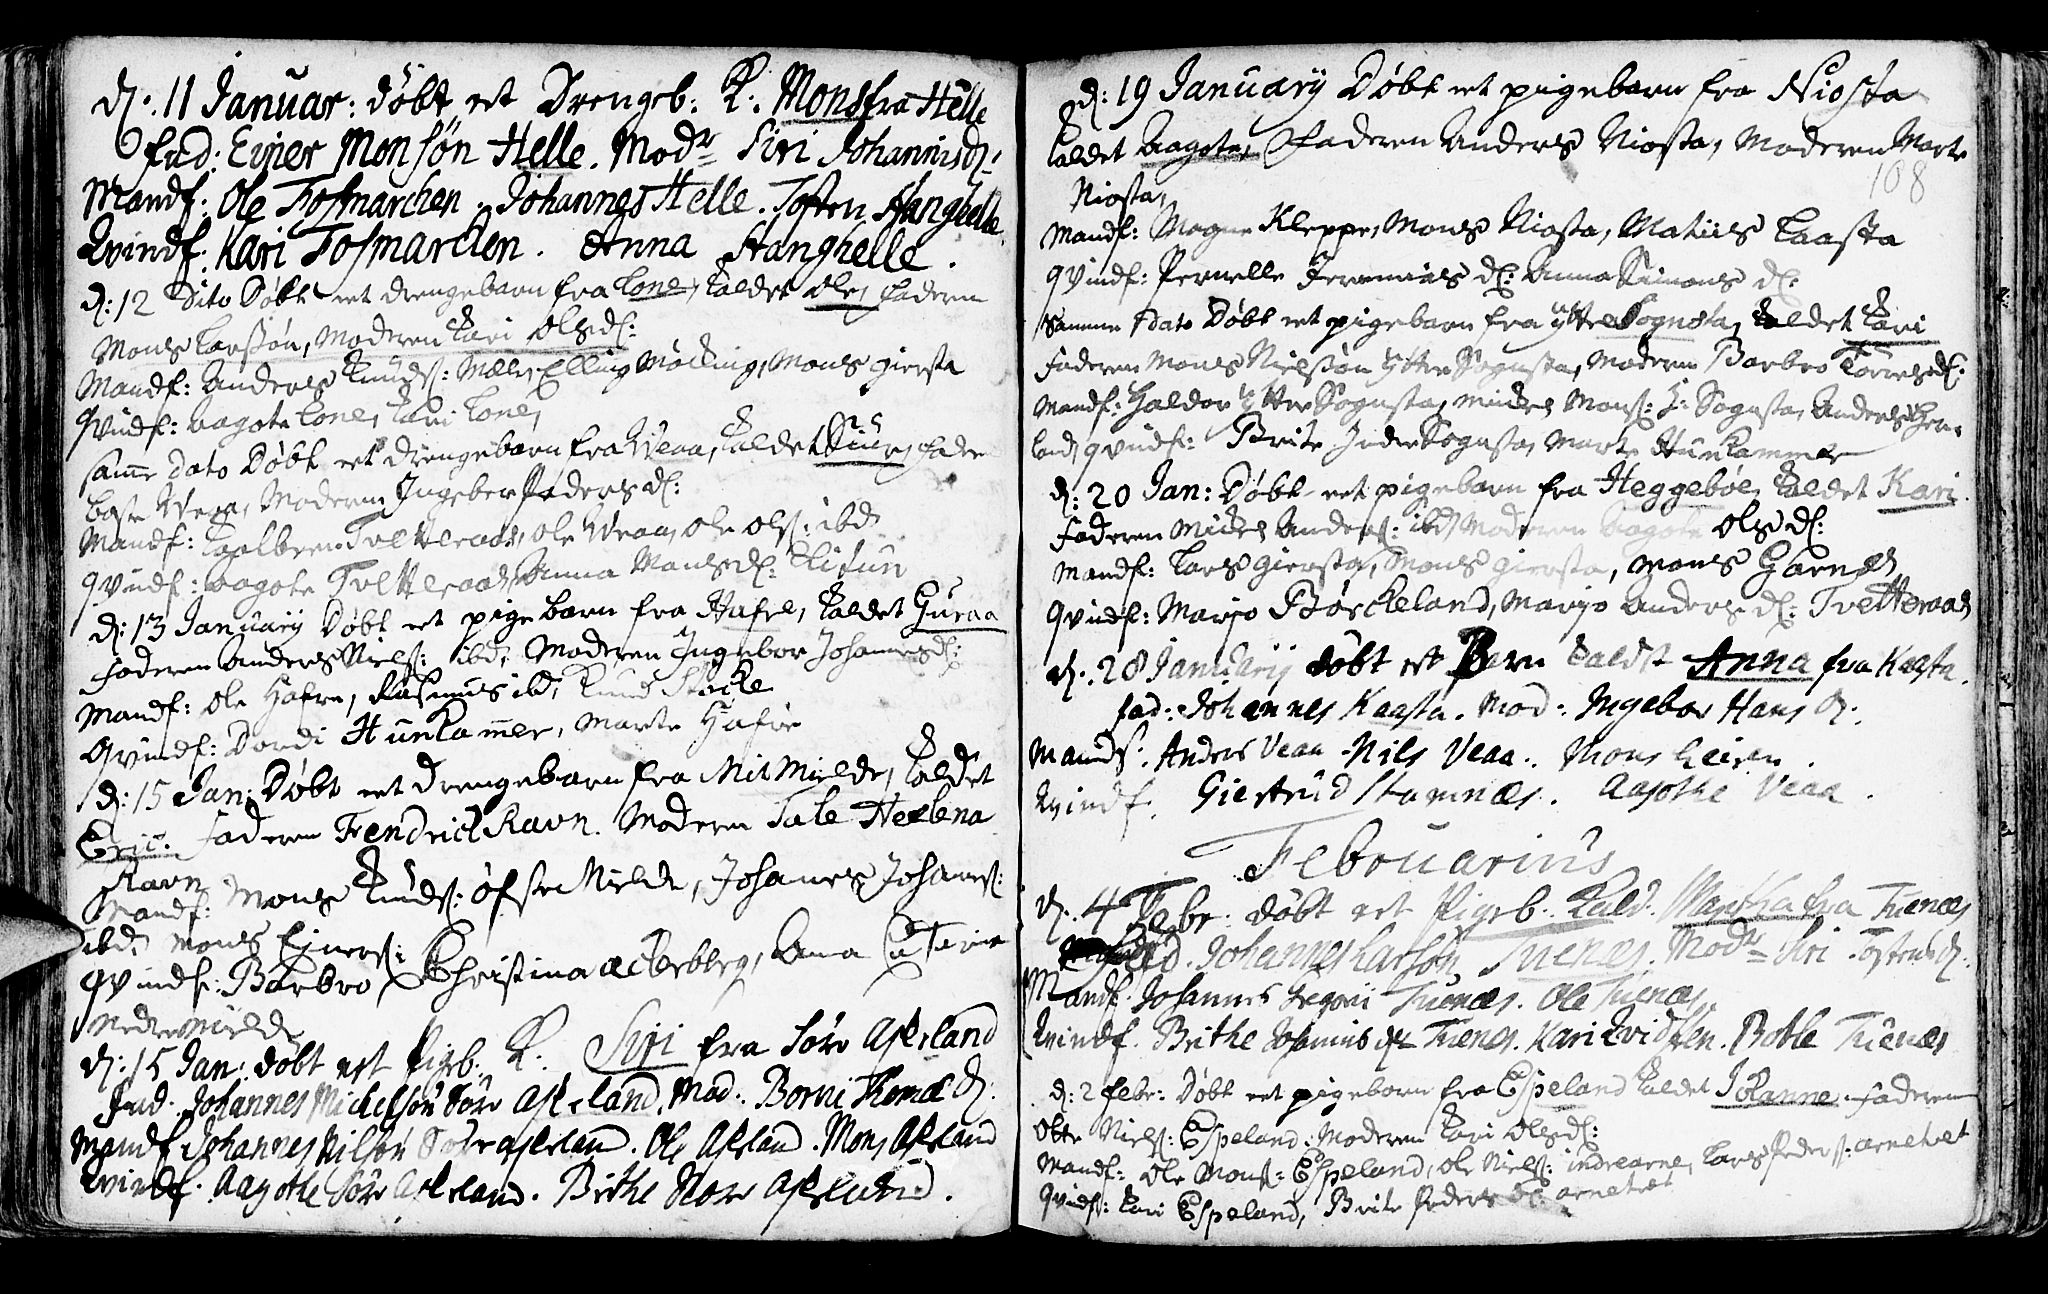 d. 11 Januar: døbt et Drengeb: K: Mons fra Helle
fad: Ejner Monsøn Helle. Modr Siri Johannisd:
Mandf: Ole Tofmarchen. Johannes Helle. Tosten Stanghelle
Qvindf: Kari Tofmarchen. Anna Stanghelle.
d: 12 Dito Døbt et drengebarn fra Lone, kaldet Ole, faderen
Mons Larssøn, Moderen Kari Olsd:
Mandf: Anders Knuds: Melle, Elling Mocking, Mons giersta
Qvindf: Aagote Lone, Kari Lone,
samme dato Døbt et drengebarn fra Weaa, kaldet Siur, fader
Veaa, Moderen Ingebor Pedersd:
Mandf: Tvetteraas, Ole Weaa, Ole Ols: ibd
qvindf: Aagote Tvetteraas, Anna Monsd: Titun
d: 13 January Døbt et pigebarn fra Hafre, kaldet Guraa
Faderen Anders Niels: ibd, Moderen Ingebor Johannesd:
Mandf: Ole Hafre, Rasmus ibd, Knud Stocke
Qvindf: Dordi Hunkammer, Marte Hafre
d: 15 Jan: Døbt et drengebarn fra Mit Mielde, kaldet
Eric. Faderen Frendrick Ravn. Moderen Tale Heelena
Ravn
Mandf: Mons Knuds: øfste Mielde, Johanes Johanes:
ibd. Mons Ejners:
qvindf: Barbro, Christina Ackerberg, Anna Catrine
Nedre Mielde
d: 15 Jan: døbt et Pigeb: K: Siri fra Søre Asheland
Fad: Johannes Michelsøn Søre Asheland. Mod: Borni Thomæ D.
Mandf. Johannes Nilsøn Søre Asheland. Ole Asheland. Mons Asheland
Qvindf. Aagothe Søre Asheland. Birthe Store Asheland.
d: 19 January Døbt et pigebarn fra Niosta
kaldet Aagote, Faderen Anders Niosta, Moderen Marte
108
Niosta,
Mandf: Magne Kleppe, Mons Niosta, Matiis Kaasta
qvindf: Pernelle Jeremias d: Anna Simons d:
Samme dato Døbt et pigebarn fra ytte Sognsta, kaldet Kari
Faderen Mons Nielssøn Ytte Sognsta, Moderen Barbro Torresd:
Mandf: Haldor Ytte Sognsta, Mickel Mons: J: Sognsta, Anders
land, qvindf: Brite Indre Sognsta, Marte Hunkammer
d: 20 Jan: Døbt et pigebarn fra Heggebøe, kaldet Kari.
Faderen Mickel Anders: ibd, Moderen Aagote Ols d:
Mandf: Lars giersta, Mons giersta, Mons Garnæs
qvindf: Marjo Børckeland, Marjo Anders d: Tvetteraas
d. 28 January døbt et Barn kaldet Anna fra Kaasta.
fad: Johannes Kaasta. Mod: Ingebor Hans D.
Mandf. Anders Veaa. Nils Veaa. Mons Leiren.
Qvindf. Giertrud Stamnæs. Aagothe Veaa.
Februarius
d. 4 Febr: døbt et Pigeb. Kald. Martha fra Tuenæs
Fad. Johannes Larsøn Tuenæs. Modr Siri Tostens D.
Mandf. Johannes Gregorii Tuenæs. Ole Tuenæs.
Qvindf. Brithe Johannis D. Tuenes. Kari Qvidsten. Botle Tuenæs
d: 2 febr: Døbt et pigebarn fra Espeland kaldet Johanne. Faderen
Otte Niels: Espeland, Moderen Kari Olsd:
Mandf: Ole Mons: Espeland, Ole Niels: indrearne, Lars Peders: arnetvet
qvindf: Kari Espeland, Brite Peders d: arnetvet